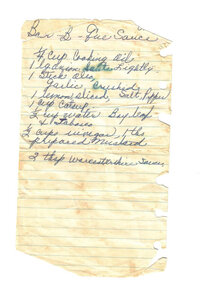 Bar-B-Que Sauce
Cup Cooking Oil
1 onion Lightly
1 Stick Oleo
Garlic Crushed
1 lemon Sliced, Salt, Pepper
1 Cup Catsup
Cup water Bay leaf
Tabasco
cups vinegar, 1 tbs
prepared Mustard
2 tbsp Worcestershire Sauce